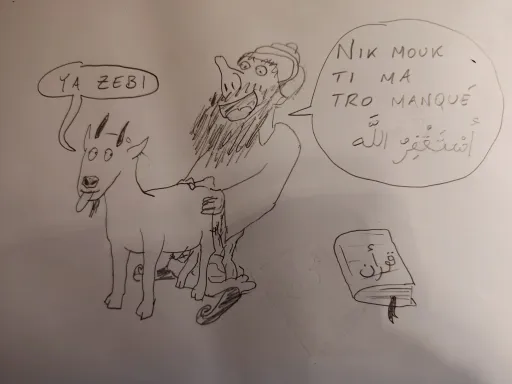 YA ZEBI
NIK MOUK
TI MA
TRO MANQUÉ
أَسْتَغْفِرُ اللَّه
قرأن